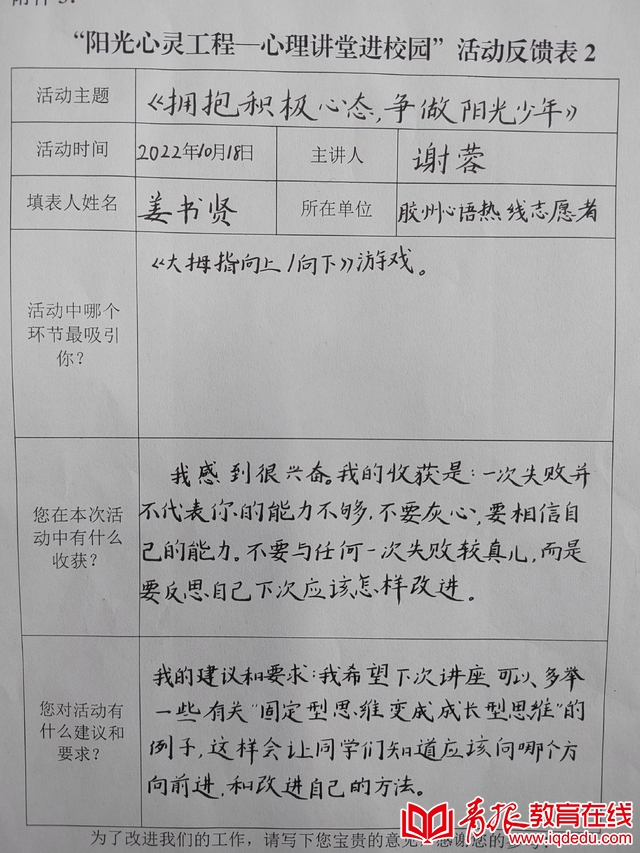 附件3:
“阳光心灵工程—心理讲堂进校园”活动反馈表 2
活动主题
《拥抱积极心态,争做阳光少年》
活动时间
2022年10月18日
主讲人
谢蓉
填表人姓名
姜书贤
所在单位
胶州心语热线志愿者
活动中哪个
环节最吸引
你?
《大拇指向上/向下》游戏。
您在本次活
动中有什么
收获?
我感到很兴奋。我的收获是:一次失败并
不代表你的能力不够,不要灰心,要相信自
己的能力。不要与任何一次失败较真儿,而是
要反思自己下次应该怎样改进。
您对活动有
什么建议和
要求?
我的建议和要求:我希望下次讲座可以多举
一些有关“固定型思维变成成长型思维”的
例子,这样会让同学们知道应该向哪个方
向前进,和改进自己的方法。
为了改进我们的工作,请写下您宝贵的意见,感谢您的参与
青报教育在线
www.iqdedu.com